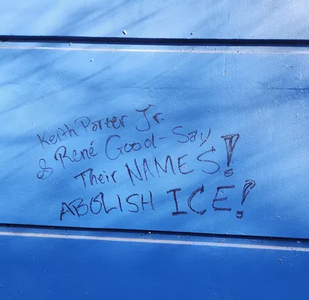 Keith Porter Jr.
& René Good - Say
Their NAMES!
ABOLISH ICE!